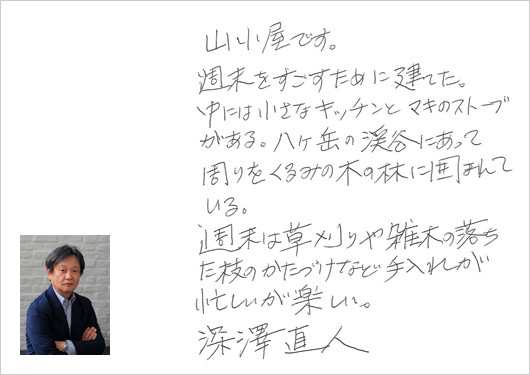 山小屋です。
週末をすごすために建てた。
中には小さなキッチンとマキのストーブ
がある。八ヶ岳の渓谷にあって
周りをくるみの木の林に囲まれて
いる。
週末は草刈りや雑木の落ち
た枝のかたづけなど手入れが
忙しいが楽しい。
深澤直人